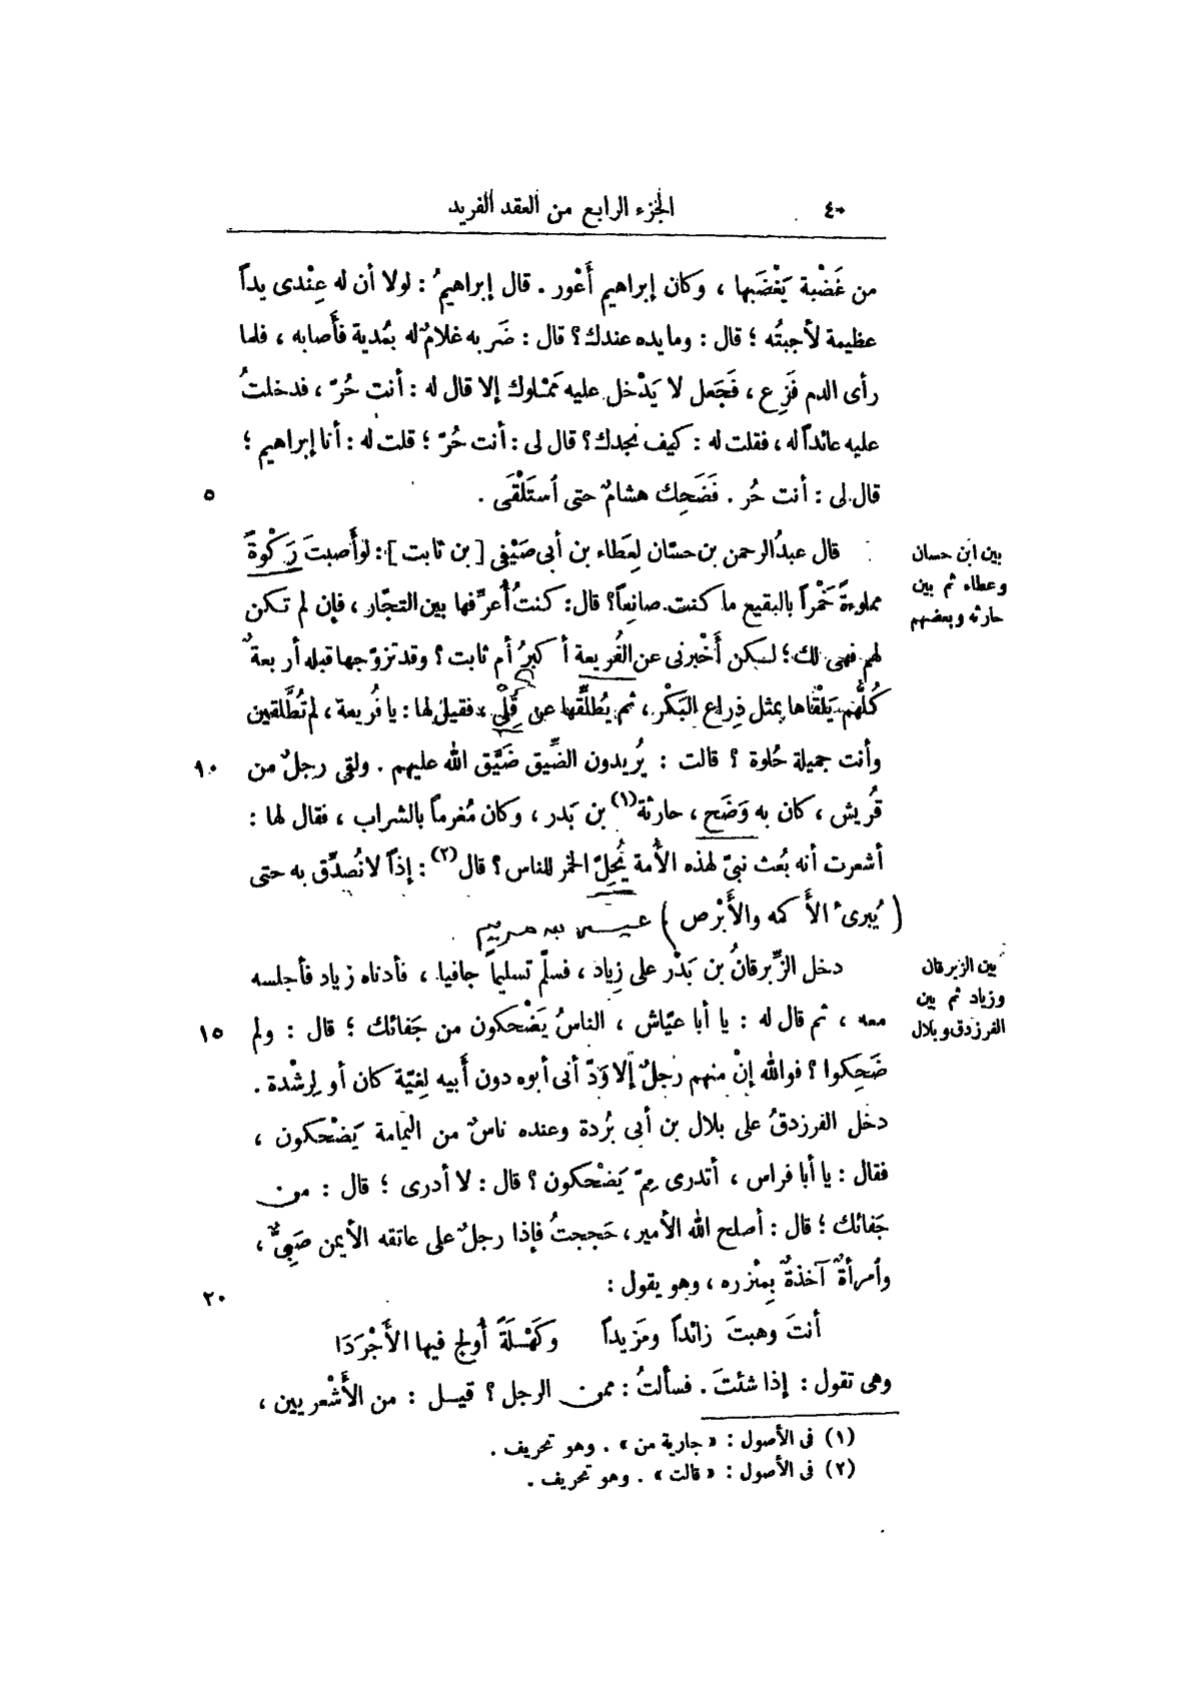 ٤٠ الجزء الرابع من العقد الفريد
من غَضْبة يَغْضَبها ، وكان إبراهيم أَعْور . قال إبراهيمُ : لولا أن له عِنْدى يداً
عظيمة لأجبتُه ؛ قال : وما يده عندك؟ قال : ضَربه غلامٌ له بمُدية فأصابه ، فلما
رأى الدم فَزِع ، فَجَعل لا يَدْخل عليه مَمْلوك إلا قال له : أنت حُرّ ، فدخلتُ
عليه عائداً له ، فقلت له : كيف نجدك؟ قال لى : أنت حُرّ ؛ قلت له : أنا إبراهيم ؛
قال لى : أنت حُر . فَضَحِك هشامٌ حتى أستَلْقَى . ٥
بين ابن حسان
وعطاء ثم بين
حارثة وبعضهم
قال عبدُ الرحمن بن حسّان لِعَطاء بن أبى صَيْفى [ بن ثابت ] : لو أَصبتَ رَكْوةً
مملوءةً خَمْراً بالبقيع ما كنت صانِعاً؟ قال: كنتُ أُعرِّفها بين التجّار ، فإن لم تكن
لهم فهى لك ؛ لكن أَخْبرنى عن الفُريعة أكبرُ أم ثابت؟ وقد تزوّجها قبله أربعةٌ
كُلُّهم يَلْقاها بمثل ذِراع البَكْر ، ثم يُطلِّقها عن قِلًى ، فقيل لها : يا فُريعة ، لم تُطَلَّقين
وأنت جميلة حُلوة ؟ قالت : يُريدون الضِّيق ضَيَّق الله عليهم . ولقى رجلٌ من ١٠
قُريش ، كان به وَضَح ، حارثة(١) بن بَدر ، وكان مُغرماً بالشراب ، فقال لها :
أشعرت أنه بُعث نبىّ لهذه الأمة يُحِلّ الخمر للناس؟ قال(٢) : إذاً لا نُصدِّق به حتى
( يُبرئ الأَكمه والأَبْرص ) عيسى بن مريم
بين الزبرقان
وزياد ثم بين
الفرزدق وبلال
دخل الزِّبرقانُ بن بَدْر على زِياد ، فسلّم تسليماً جافيا ، فأدناه زياد فأجلسه
معه ، ثم قال له : يا أبا عيّاش ، الناسُ يَضْحكون من جَفائك ؛ قال : ولم ١٥
ضَحِكوا ؟ فوالله إنْ منهم رَجلٌ إلا وَدّ أنى أبوه دون أَبيه لِغيّة كان أو لِرشْدة .
دخل الفرزدقُ على بلال بن أبى بُردة وعنده ناسٌ من اليمامة يَضْحكون ،
فقال : يا أبا فراس ، أتدرى مِمّ يَضْحكون ؟ قال : لا أدرى ؛ قال : من
جَفائك ؛ قال : أصلح الله الأمير ، حَججتُ فإذا رجلٌ على عاتقه الأيمن صَبِىٌّ ،
وأمرأةٌ آخذةٌ بمِئْزره ، وهو يقول : ٢٠
أنتَ وهبتَ زائداً ومَزيداً وكَهْلَةً أُولج فيها الأَجْرَدَا
وهى تقول : إذا شئتَ . فسألتُ : ممن الرجل ؟ قيل : من الأَشْعريين ،
(١) فى الأصول : « جارية من » . وهو تحريف .
(٢) فى الأصول : « قالت » . وهو تحريف .